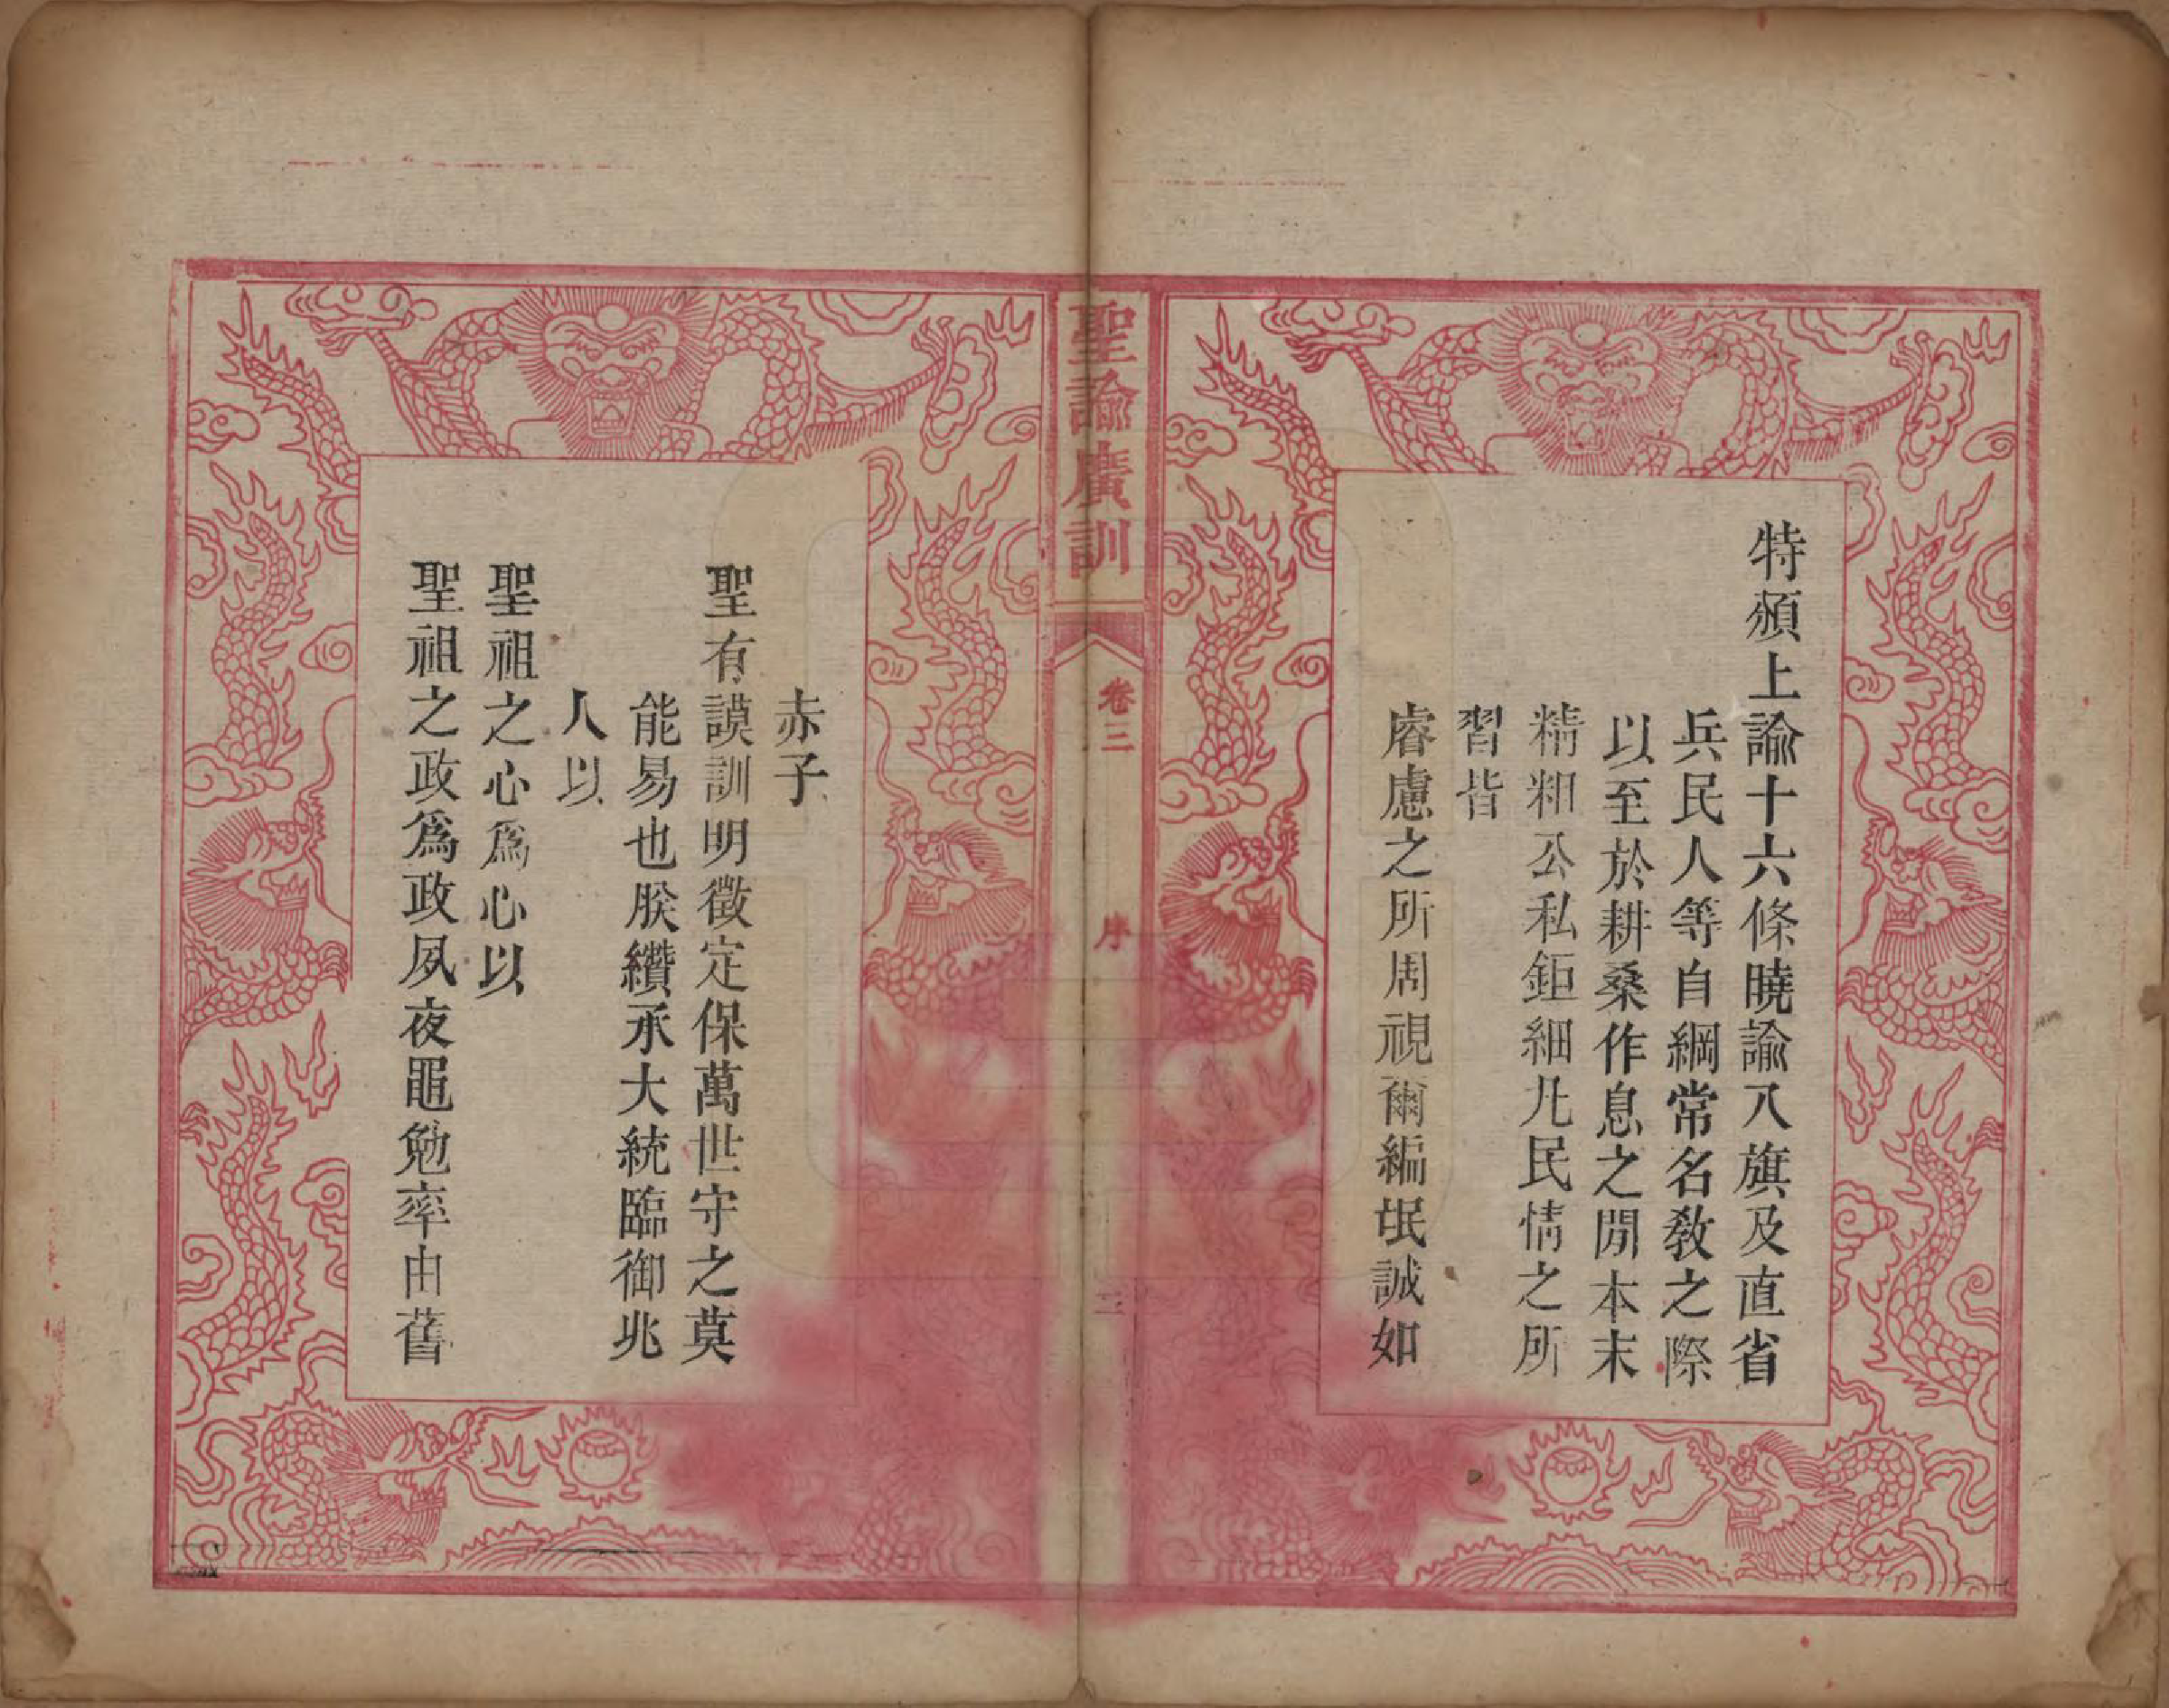 特頒上諭十六條曉諭八旗及直省
兵民人等自綱常名教之際
以至於耕桑作息之閒本末
精粗公私鉅細凡民情之所
習皆
睿慮之所周視爾編氓誠如
聖諭廣訓
卷三
序
三
赤子
聖有謨訓明徵定保萬世守之莫
能易也朕纘承大統臨御兆
人以
聖祖之心爲心以
聖祖之政爲政夙夜黽勉率由舊